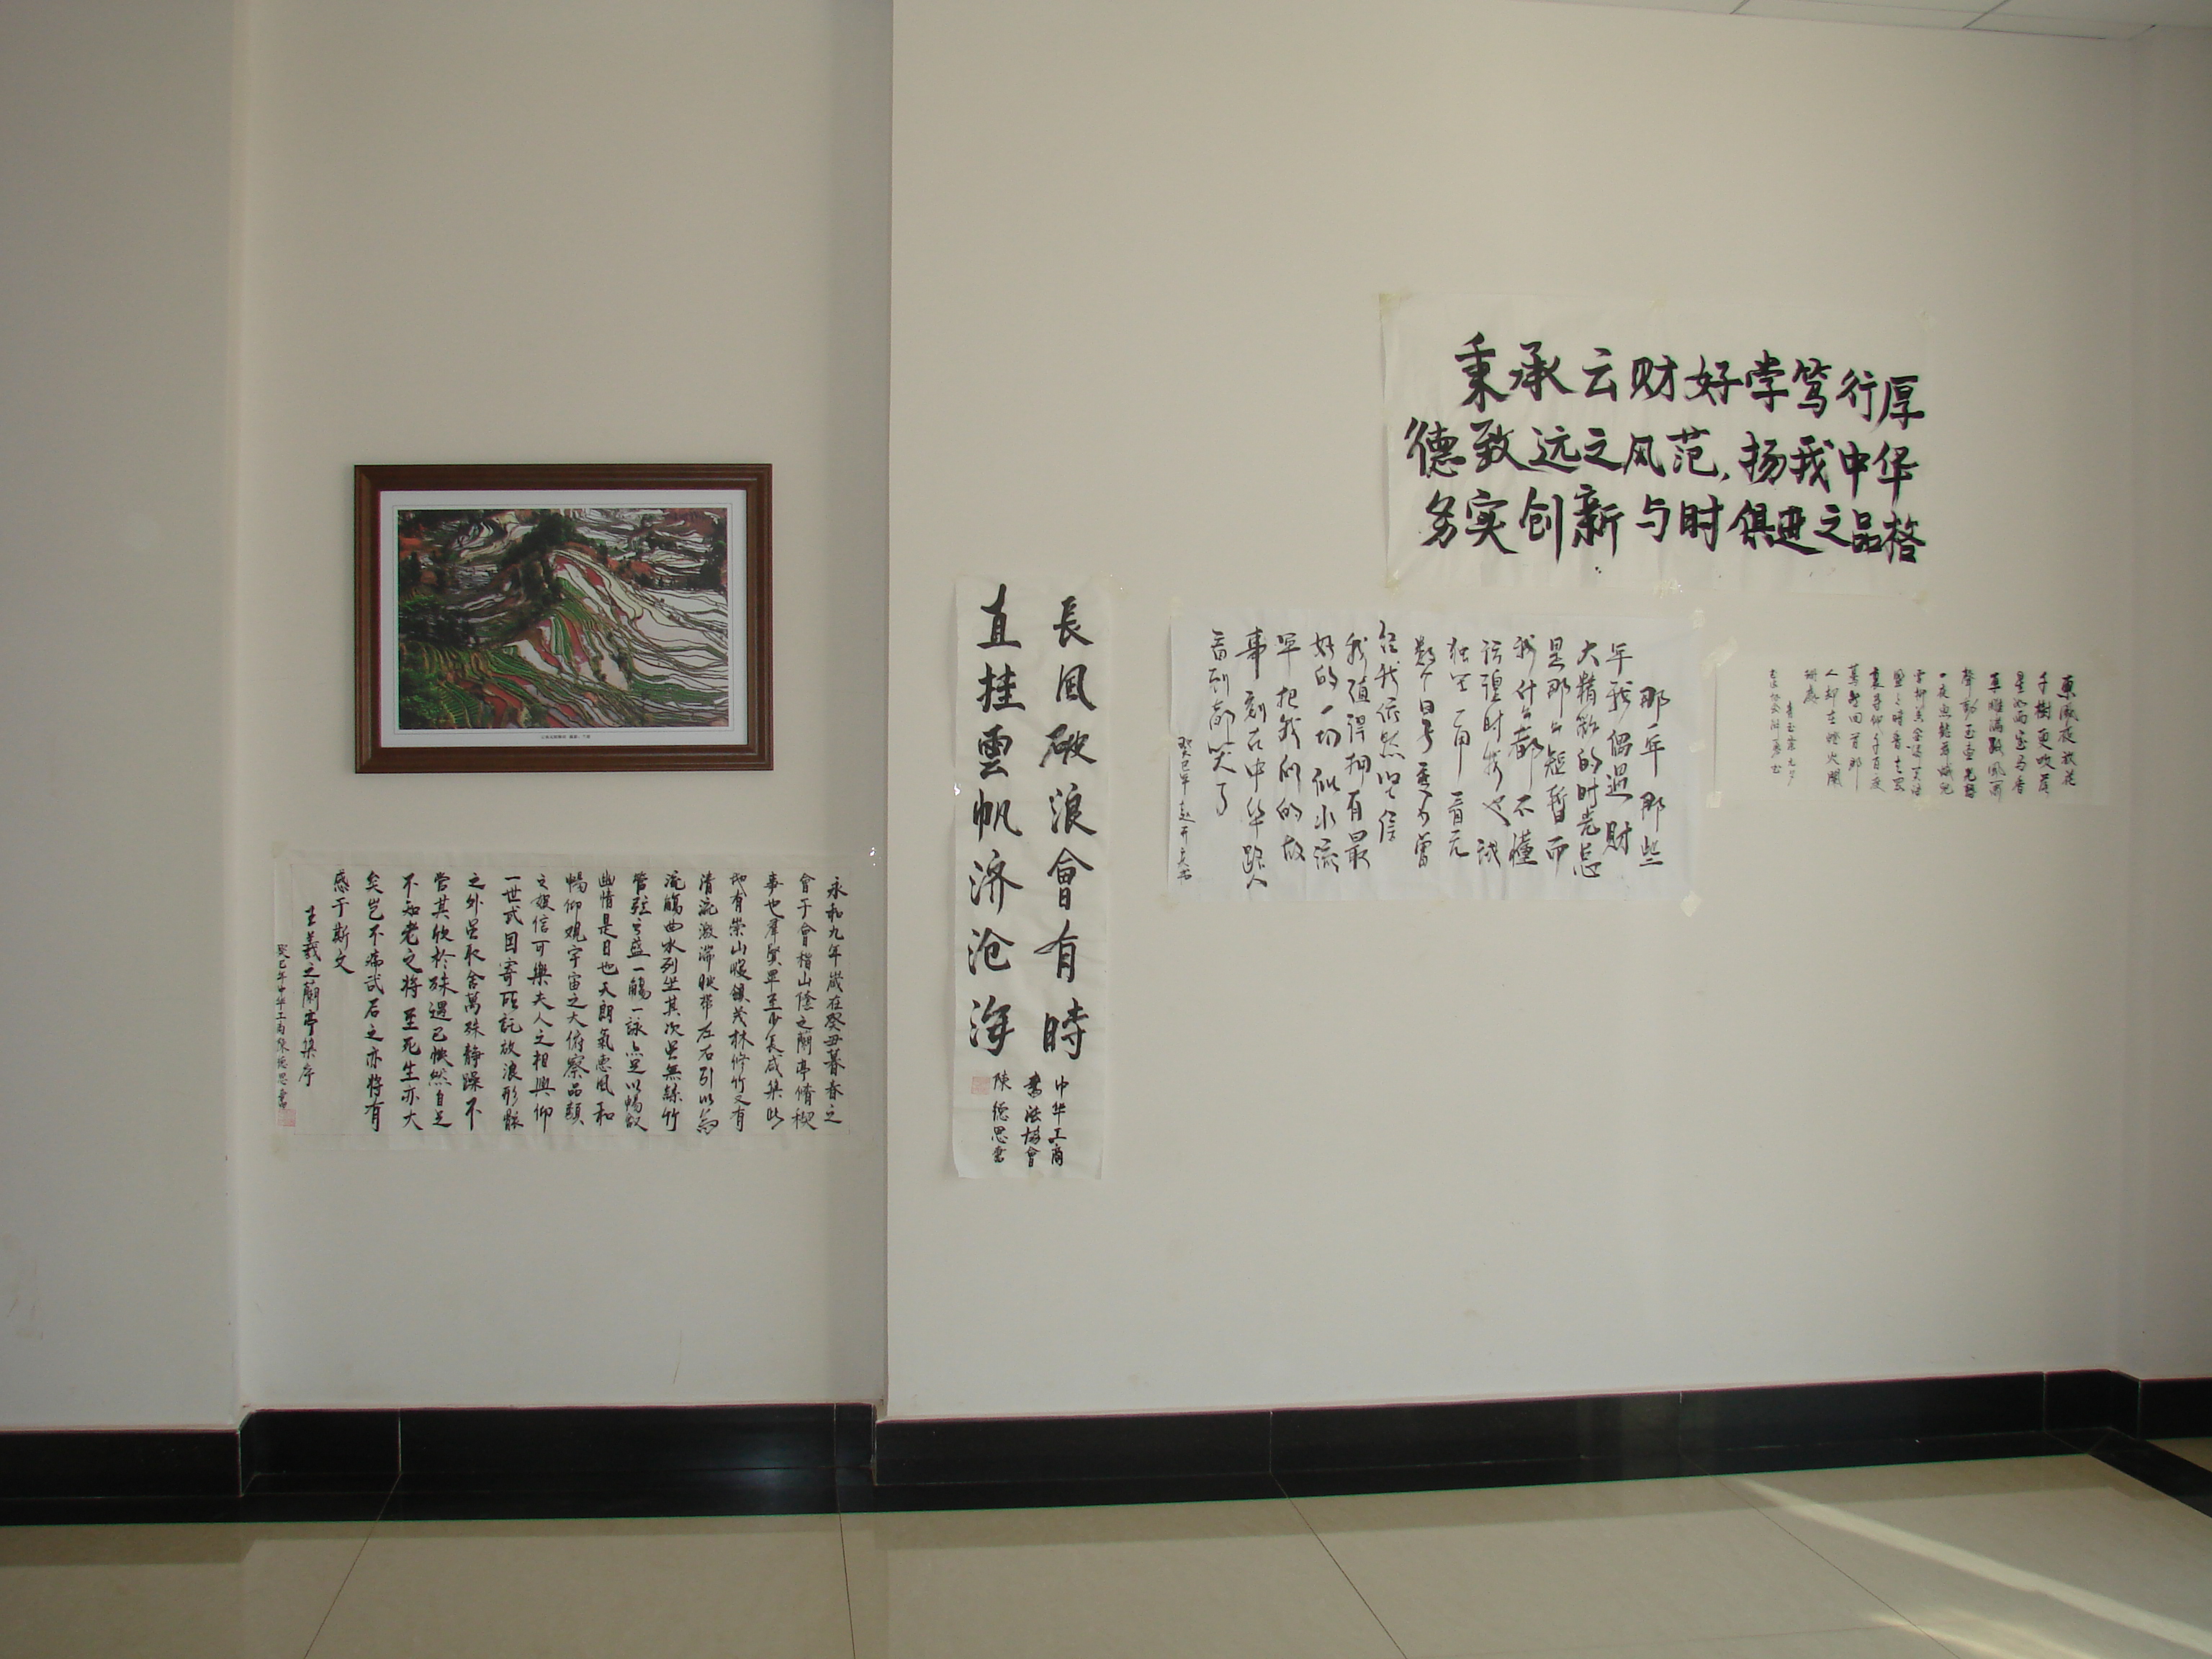 秉承云财好学笃行厚
德致远之风范,扬我中华
务实创新与时俱进之品格
長风破浪會有時
直挂雲帆济沧海
中华工商
書法協會
陳德思書
那年那些
年我偶遇財
大精緻的时光总
是那么短暂而
我什么都不懂
独坐一角一看元
数个日号垂不曾
在我依然坚信
我值得拥有最
好的一切似水流
年把我们的故
事刻在中华路人
看到都笑了
癸巳年
東風夜放花
千樹更吹落
星如雨宝马香
車雕滿路風蕭
聲動玉壺光轉
一夜魚龍舞蛾兒
雪柳黃金縷笑語
盈盈暗香去眾
裏尋他千百度
驀然回首那
人却在燈火闌
珊處
青玉案元夕
永和九年歲在癸丑暮春之
會于會稽山陰之蘭亭脩禊
事也羣賢畢至少長咸集此
地有崇山峻領茂林修竹又有
清流激湍映帶左右引以為
流觴曲水列坐其次雖無絲竹
管弦之盛一觴一詠亦足以暢敘
幽情是日也天朗氣惠風和
暢仰觀宇宙之大俯察品類
之娛信可樂夫人之相與仰
一世或因寄所託放浪形骸
之外雖取舍萬殊静躁不
當其欣於殊遇已怏然自足
不知老之將至死生亦大
矣豈不痛哉后之亦將有
感于斯文
王羲之蘭亭集序
癸巳年中华工商陳德思書